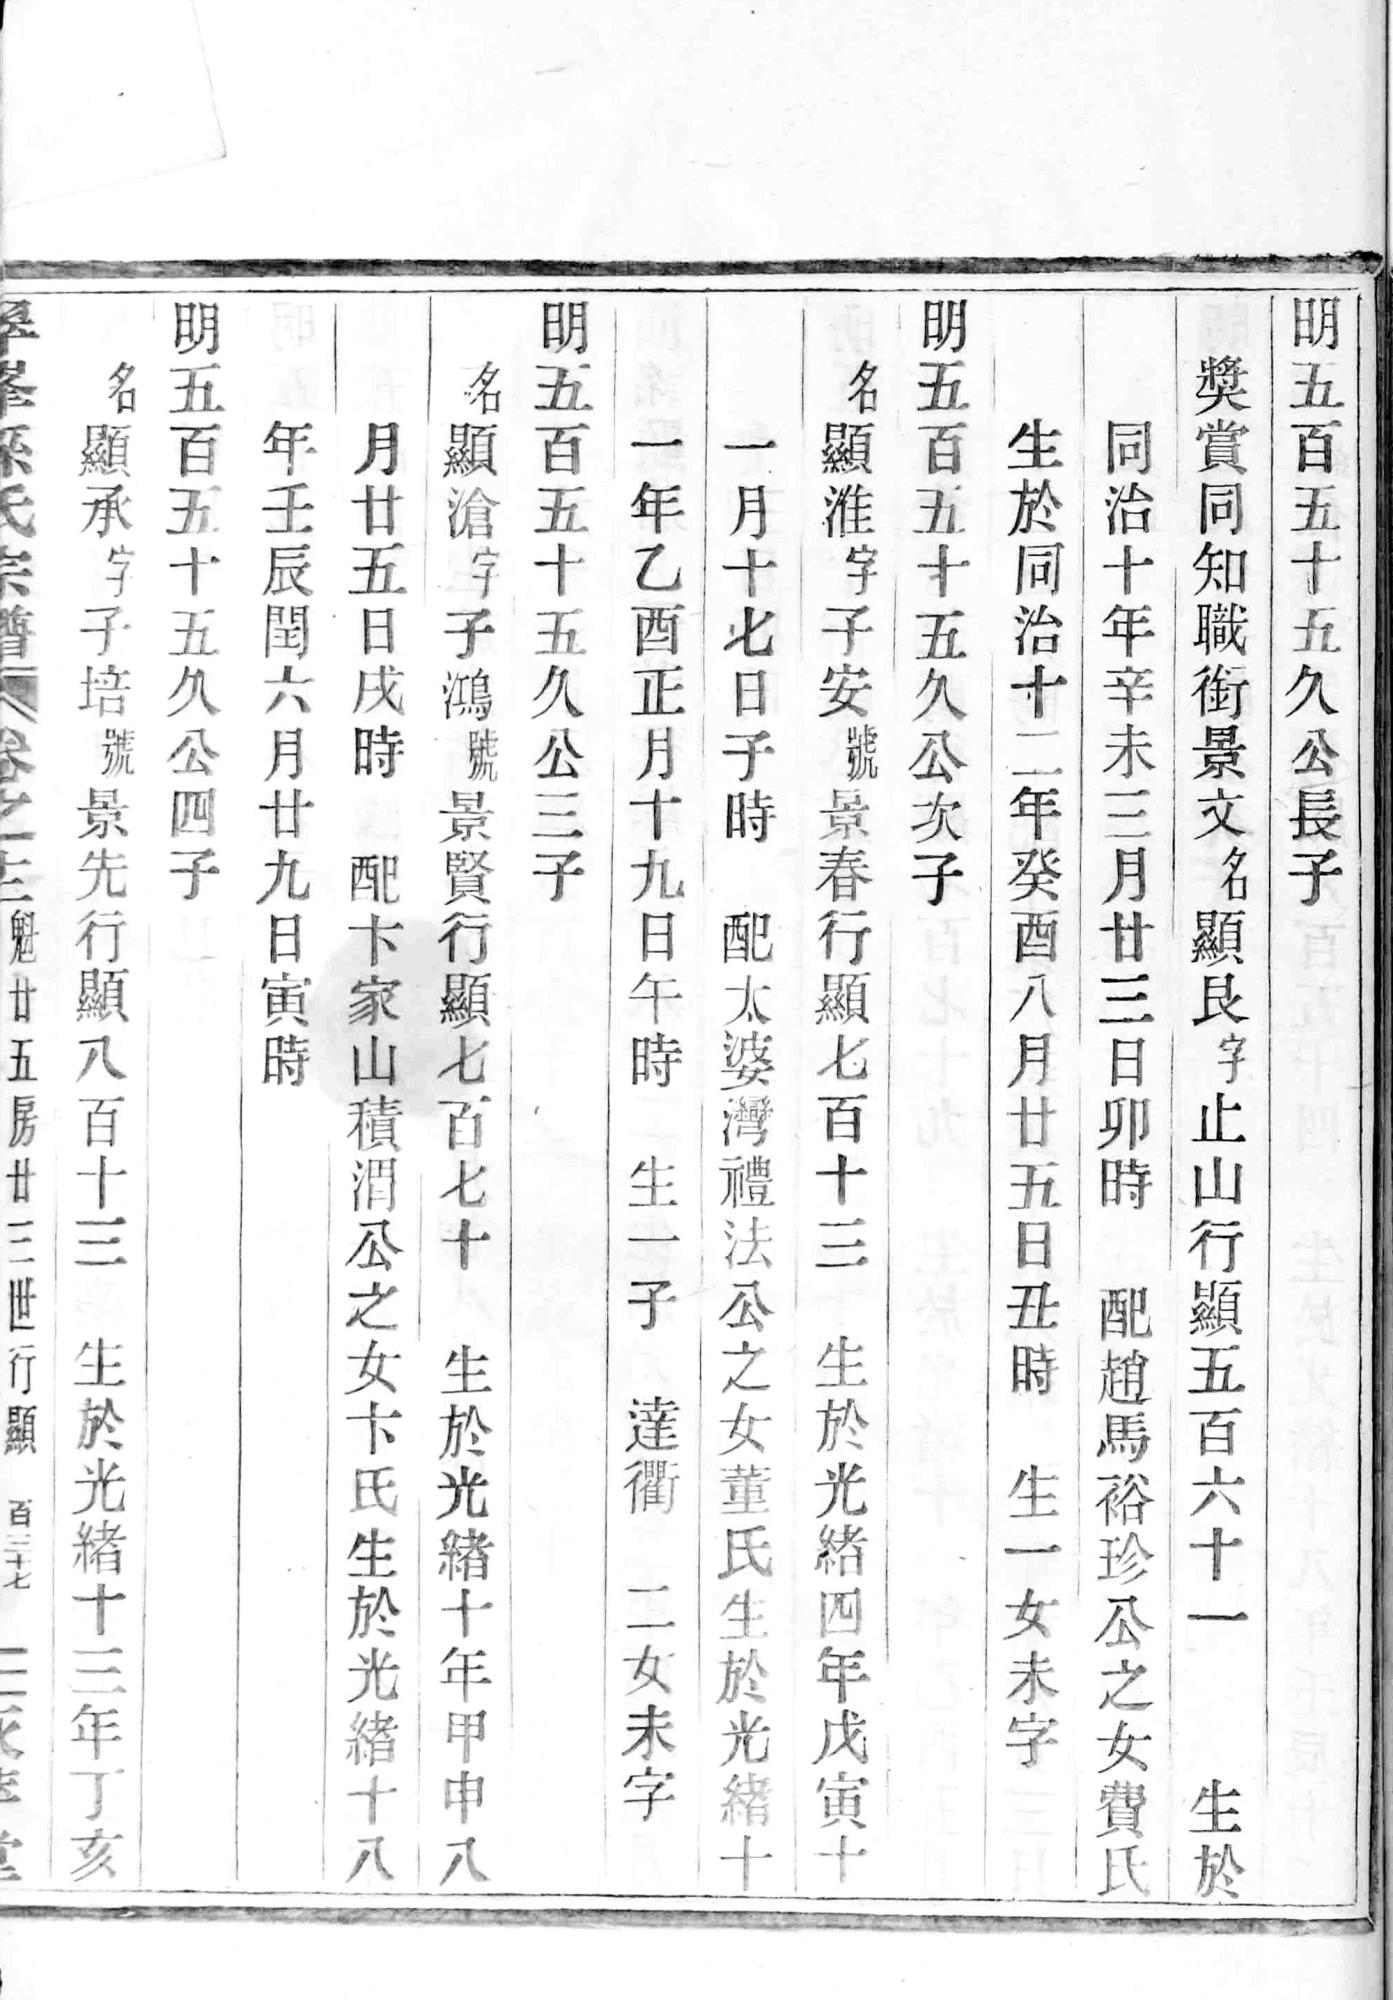 明五百五十五久公長子
獎賞同知職銜景文名顯艮字止山行顯五百六十一　生於
同治十年辛未三月廿三日卯時　配趙馬裕珍公之女費氏
生於同治十二年癸酉八月廿五日丑時　生一女未字
明五百五十五久公次子
名顯淮字子安號景春行顯七百十三　生於光緒四年戊寅十
一月十七日子時　配太婆灣禮法公之女董氏生於光緒十
一年乙酉正月十九日午時　生一子　達衢　二女未字
明五百五十五久公三子
名顯滄字子鴻號景賢行顯七百七十　生於光緒十年甲申八
月廿五日戌時　配卞家山積渭公之女卞氏生於光緒十八
年壬辰閏六月廿九日寅時
明五百五十五久公四子
名顯承字子培號景先行顯八百十三　生於光緒十三年丁亥
氏宗譜　卷之十　魁廿五房廿三世行顯　百三十七　堂